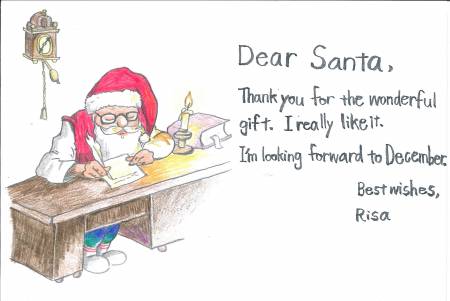 Dear Santa,
Thank you for the wonderful
gift. I really like it.
I'm looking forward to December.
Best wishes,
Risa